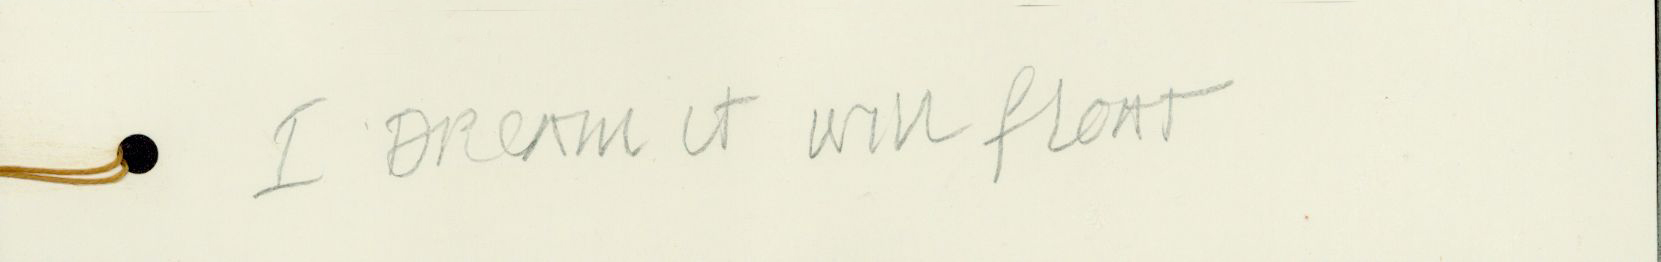 I DREAM it will float